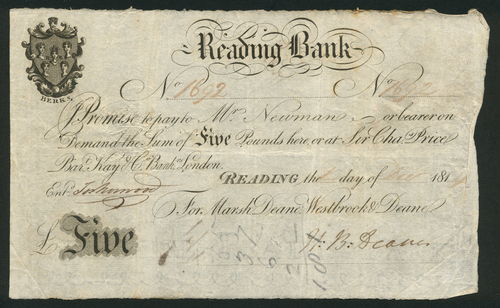 Reading Bank
BERKS.
No 1692 No 1692
I Promise to pay to Mr. Newman or bearer on
Demand the Sum of Five Pounds here or at Sir Chas. Price
Bart. Kay & Co. Bankers London.
READING the day of 181
Entd.
For Marsh Deane Westbrook & Deane
£ Five
H. B. Deane